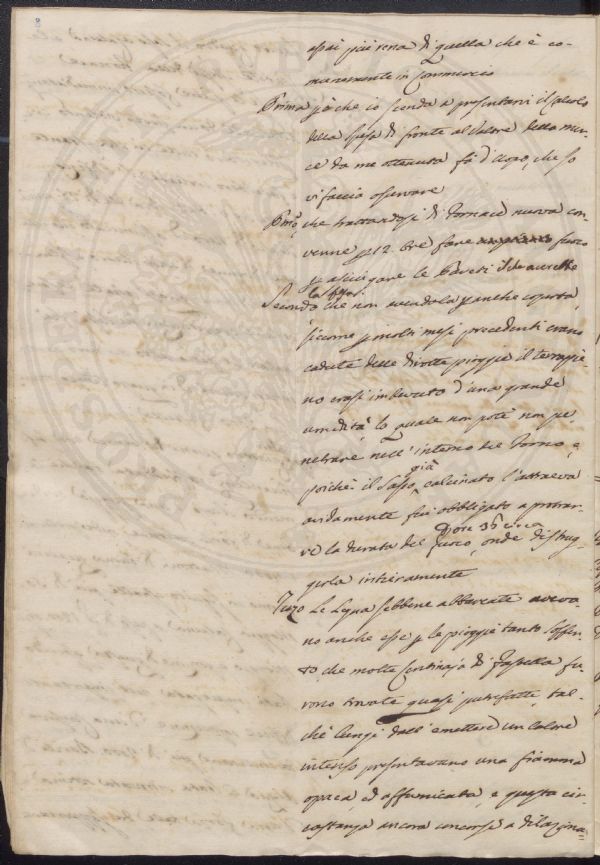 assai più rena di quella che è co-
munemente in Commercio
Prima già che io scenda a presentarvi il calcolo
della spesa di fronte al valore della mer-
ce da me ottenuta fà d'uopo, che io
vi faccia osservare
Primo, che trattandosi di Fornace nuova con-
venne p 12 Ore fare fuoco
p asciugare le Pareti
la spesa.
Secondo che non avendola p anche coperta,
siccome p molti mesi precedenti erano
cadute delle dirotte pioggie il terrapie-
no erasi imbevuto d'una grande
umidità, la quale non potè non pe
netrare nell'interno del Forno, e
già
poichè il Sasso calcinato l'attraeva
avidamente fui obbligato a protrar-
di ore 35 circa
re la durata del fuoco, onde distrug-
gerla intieramente
Terzo Le Legna sebbene abbarcate aveva-
no anche esse p le pioggie tanto soffer-
to, che molte Centinaja di Fascetta fu-
rono trovate quasi putrefatte, tal-
chè lungi dall'emettere un Calore
intenso presentavano una fiamma
opaca ed affumicata, e questa cir-
costanza ancora concorse a dilaziona=